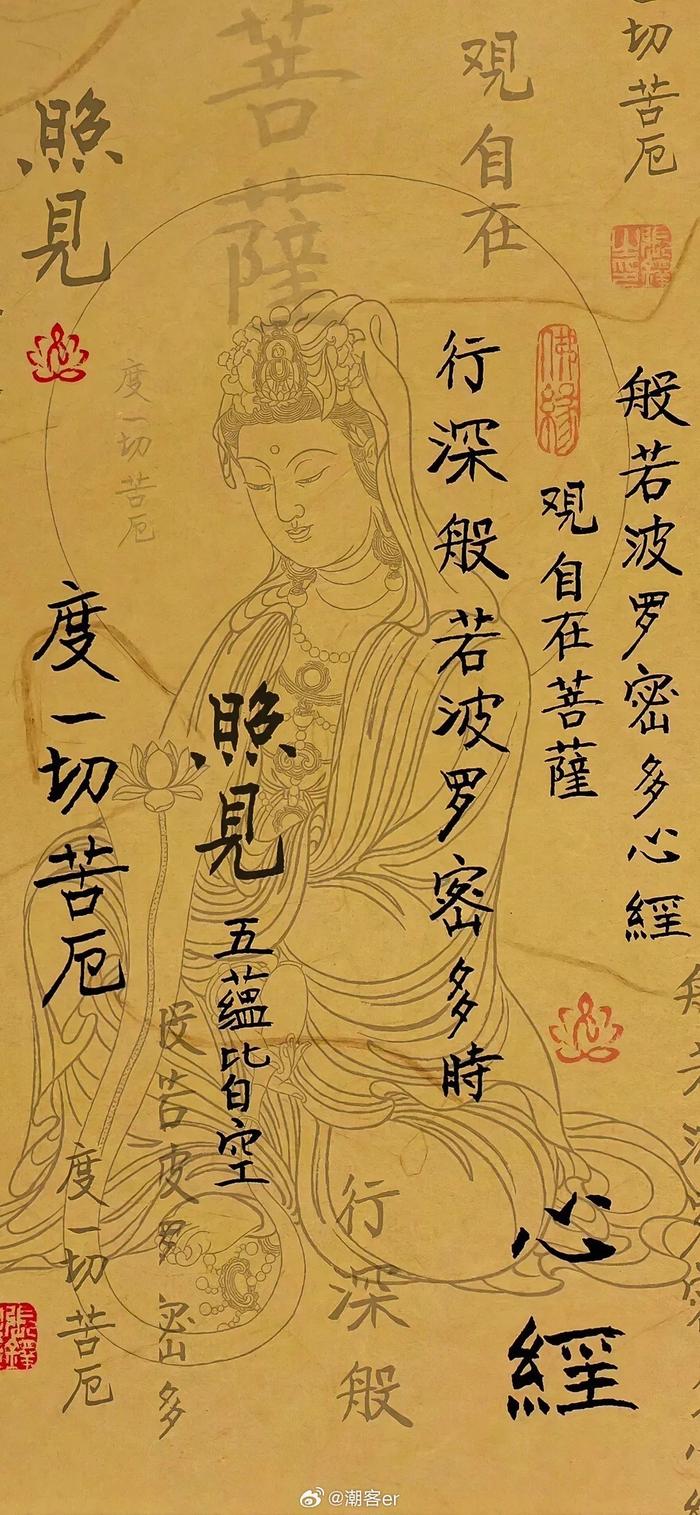 一切苦厄
般若波罗密多心經
观自在
佛緣
观自在菩薩
行深般若波罗密多時
菩薩
照見
五蘊皆空
照見
度一切苦厄
度一切苦厄
心經
行深般
般若波罗密多
度一切苦厄
@潮客er